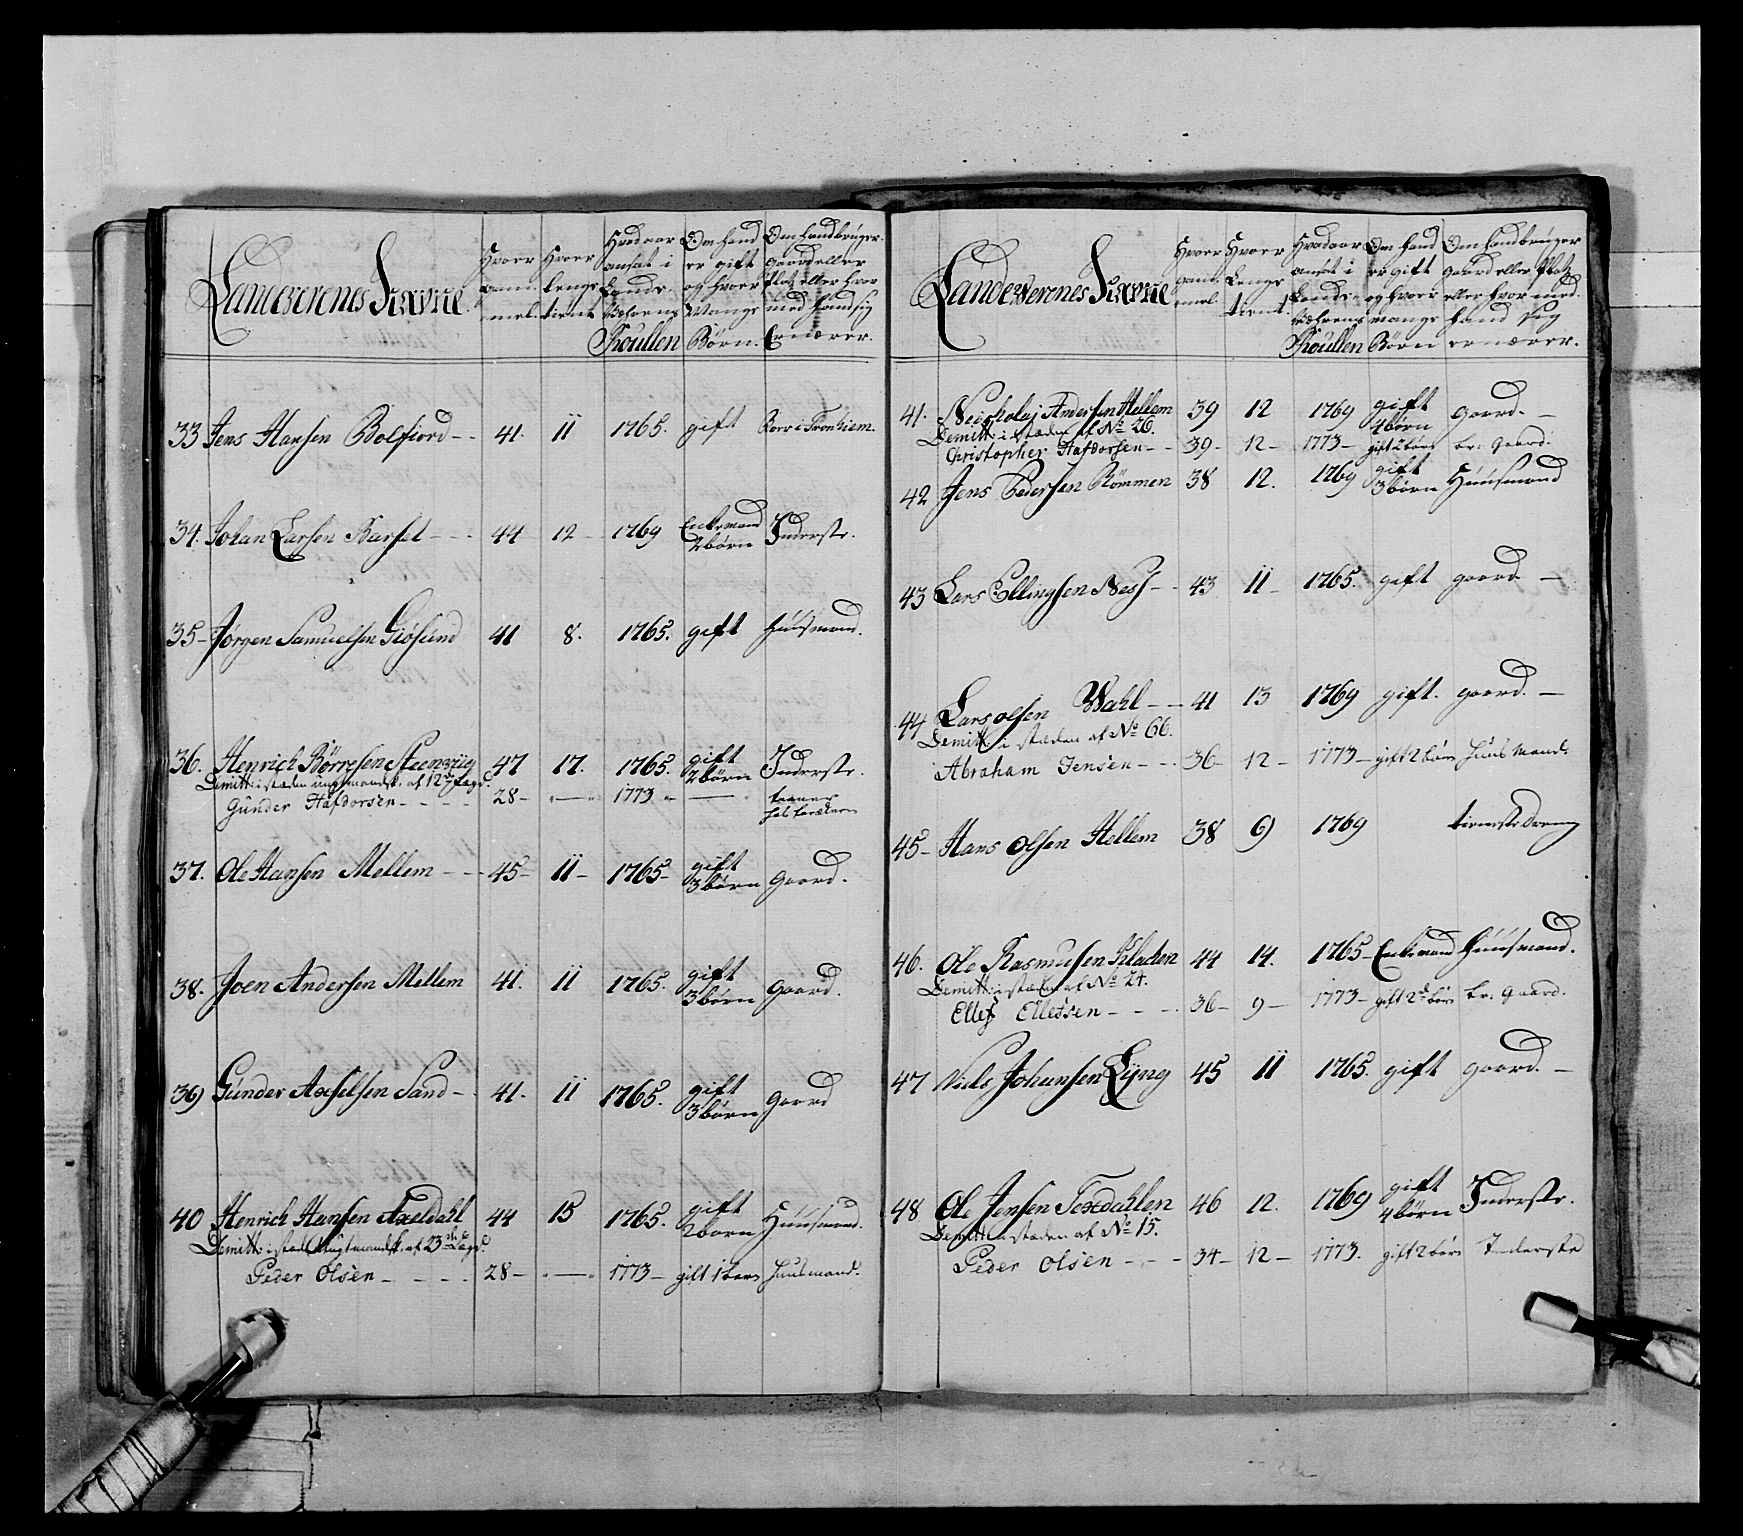 Landeverenes Navne
Hvor gammel
Hvor lenge tient
Hvad aar ansat i Lande Wehrens Roullen
Om hand er gift og hvor Mange Børn.
Om hand bruger gaard eller Platz eller hvor med hand sig Ernærer.
33 Jens Hansen Bolfiord - - 41. 11 1765. gift Boer i Tronhiem
34. Johan Larsen Barset - - - 44 12 - 1769 Enkemand 2 børn Inderste.
35 - Jørgen Samuelsen Giøsund 41 8. 1765. gift Huusmand.
36. Henrich Børresen Steensiig 47 17. 1765. gift 2 børn Inderste.
Demitt: i steden af 12te Lægd.
Gunder Hafdorsen - - - - 28 - " — " 1773 " —
37. Ole Hansen Mellem - - - 45 - 11 - 1765 - gift 3 børn Gaard.
38. Joen Andersen Mellem 41. 11 1765. gift 3 børn Gaard.
39 Gunder Axselsen Sand - - 41. 11 1765. gift 3 børn Gaard
40 Henrich Hansen Axeldahl 44 15 1765. gift 2 børn Huusmand.
Demitt: i sted af 23de Lægd.
Peder Olsen - - - - 28 - " — " 1773 - gift 1 barn Huusmand.
Landewerenes Navne
Hvor gammel
Hvor Lenge tient.
Hvad aar ansat i Lande Wæhrens Roullen
Om hand er gift og hvor mange Børn
Om hand bruger gaard eller Platz eller hvor med hand sig ernærer.
41. Neicholaj Andersen Hellem 39 12 1769 gift 4 børn gaard. —
Demitt: i stæden af No 26.
Christopher Hafdorsen - - 39 - 12 - 1773 - gift 2 børn br: gaard.
42 Jens Pedersen Rømmen 38 12. 1769 gift 3 børn Huusmand
43 Lars Ellingsen Ness - - 43 11 - 1765. gift gaard —
44 Lars olsen Wahl - - 41 13 1769 gift. gaard. —
Demitt: i stæden af No 66.
Abraham Jensen - - - 36 - 12 - 1773 - gift 2 børn Huusmand.
45 - Hans Olsen Hellem 38 9 1769 tienstedreng
46. Ole Rasmusen Kladen 44 14. 1765 - Enkemand Huusmand.
Demitt: i stæden af No 24.
Ellef Ellefsen - - - 36 - 9 - 1773 - gift 2 børn br: gaard.
47 Niels Johansen Lyng 45 11 1765. gift gaard. —
48 Ole Jensen Texdahlen 46 12. 1769 gift 4 børn Inderste.
Demitt: i stæden af No 15.
Peder Olsen - - - 34 - 12 - 1773. gift 2 børn Inderste